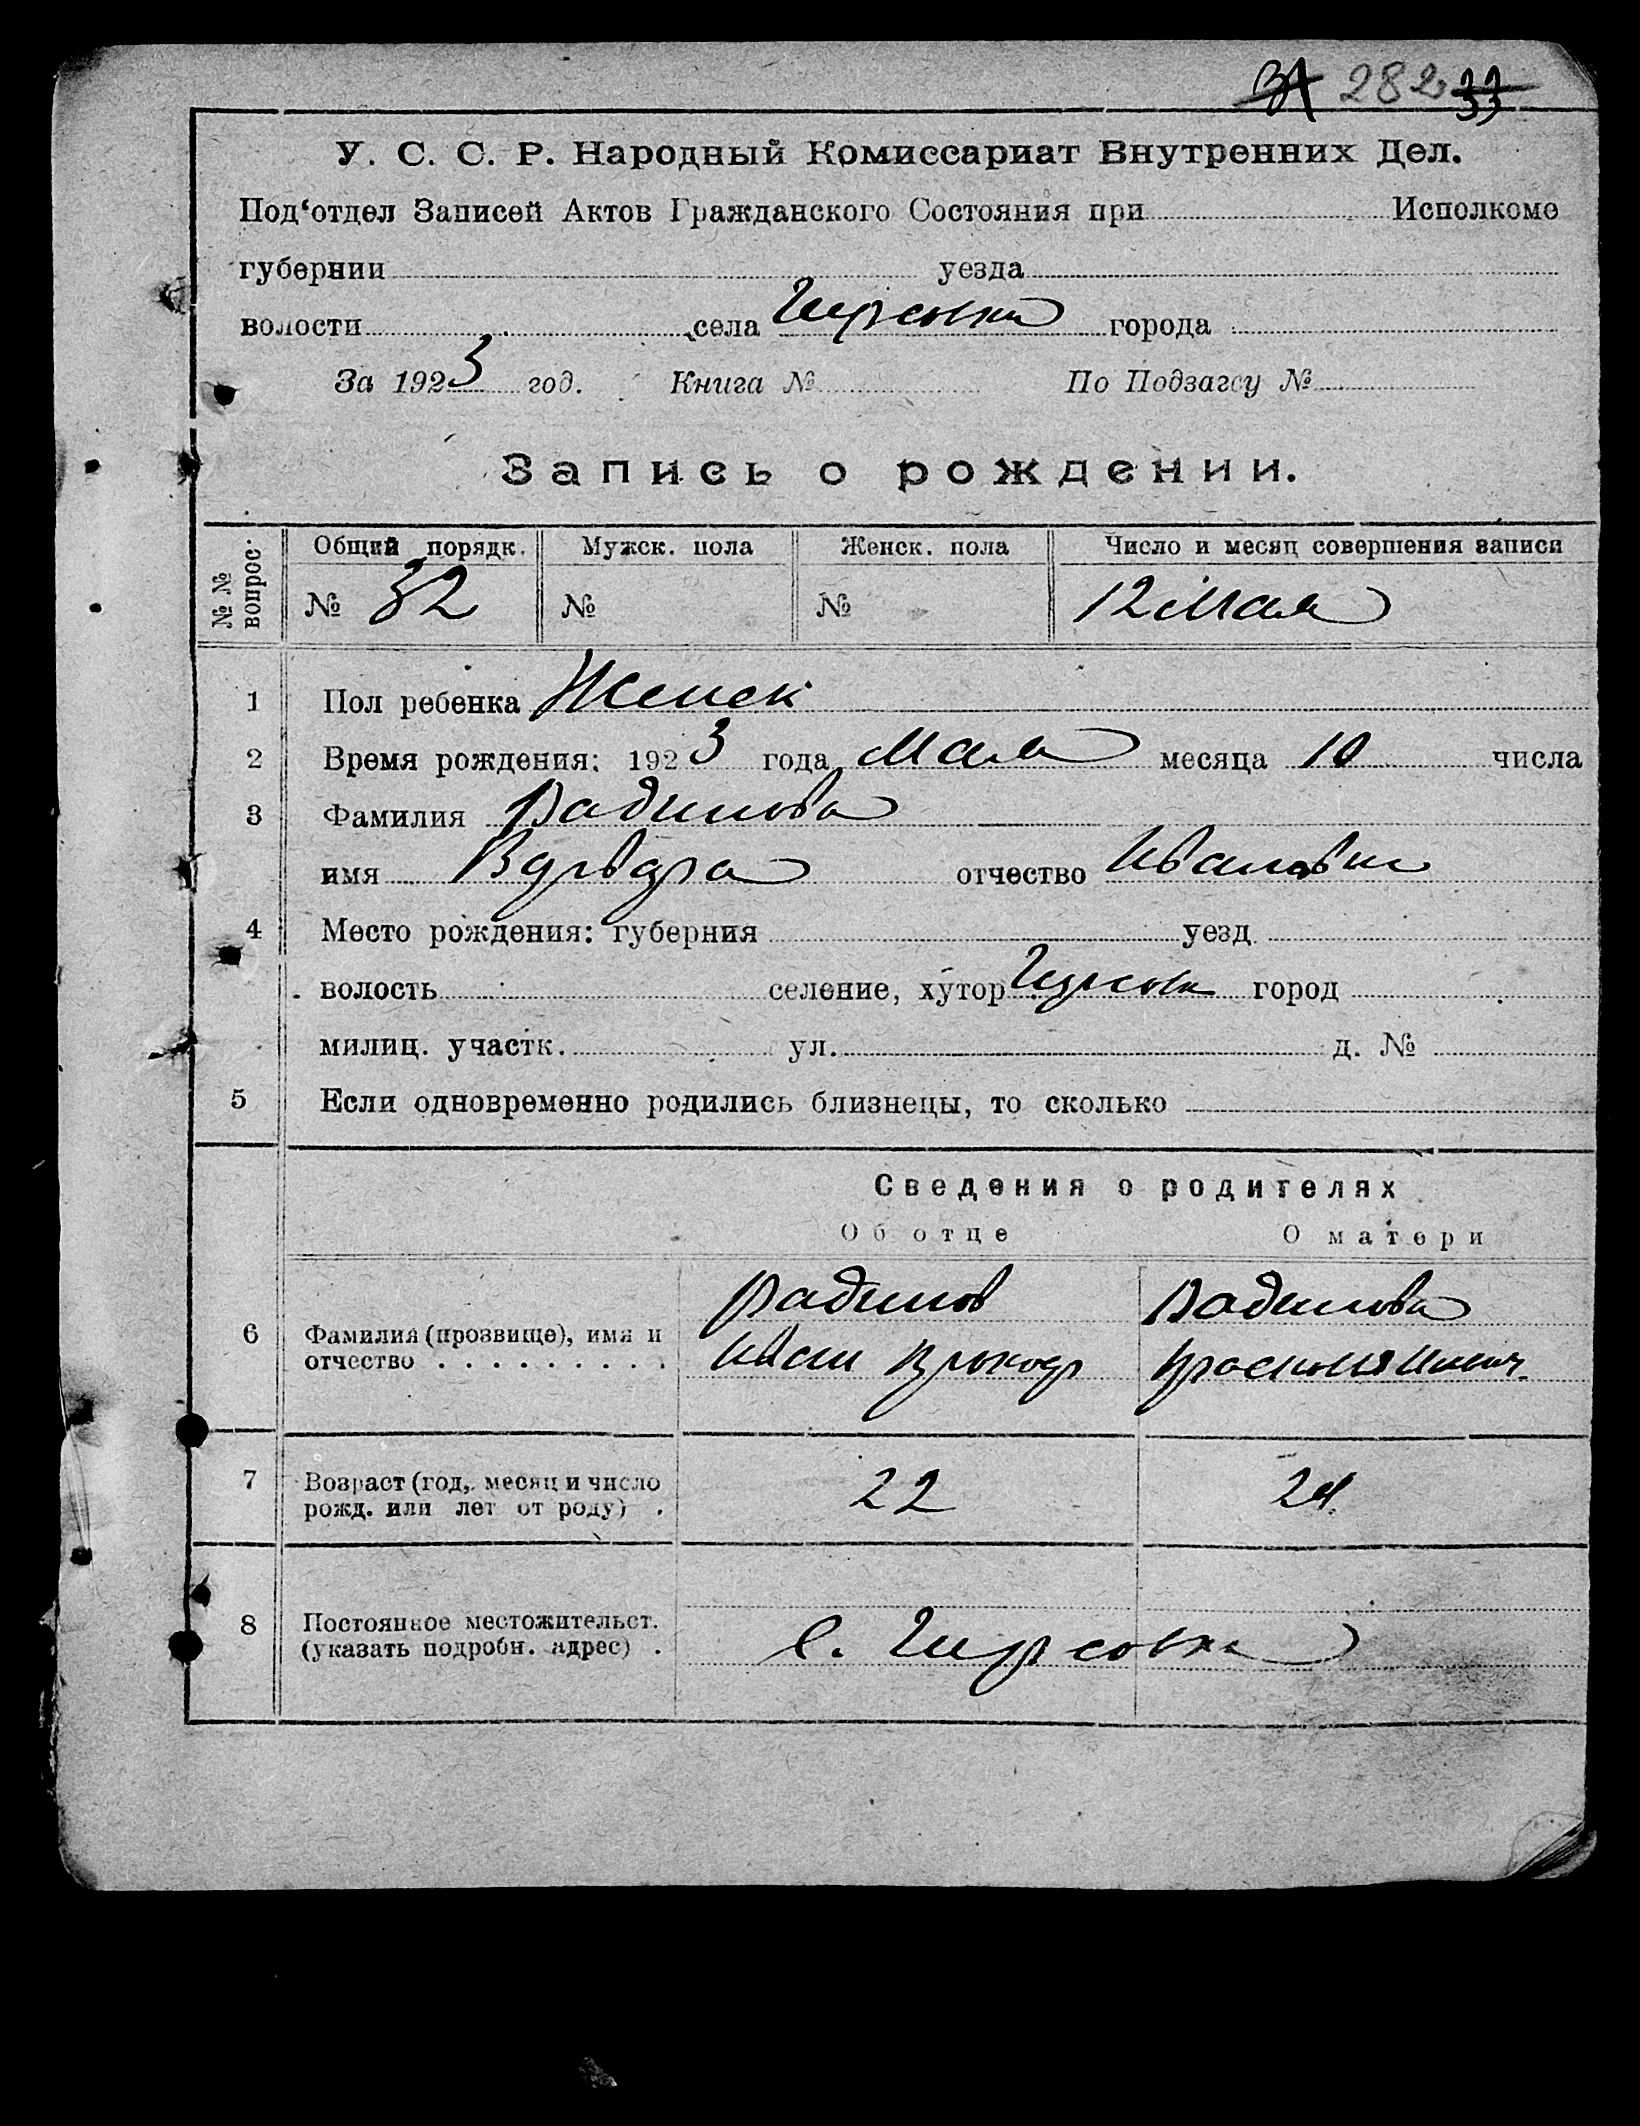 282
У. С. С. Р. Народный Комиссариат Внутренних Дел.
Под‘отдел Записей Актов Гражданского Состояния при Исполкоме
губернии уезда
волости села Гирсовка города
За 1923 год. Книга № По Подзагсу №
Запись о рождении.
№№ вопрос. Общий порядк. Мужск. пола Женск. пола Число и месяц совершения записи
№ 32 № № 12 Мая
1 Пол ребенка Женск
2 Время рождения: 1923 года Мая месяца 10 числа
3 Фамилия Радилова
имя Варвара отчество Ивановна
4 Место рождения: губерния уезд
волость селение, хутор Гирсовк город
милиц. участк. ул. д. №
5 Если одновременно родились близнецы, то сколько
Сведения о родителях
Об отце О матери
Радилов Радилова
6 Фамилия (прозвище), имя и
отчество Иван
7 Возраст (год, месяц и число
рожд. или лет от роду) 22 21
8 Постоянное местожительст.
(указать подробн. адрес) с. Гирсовка